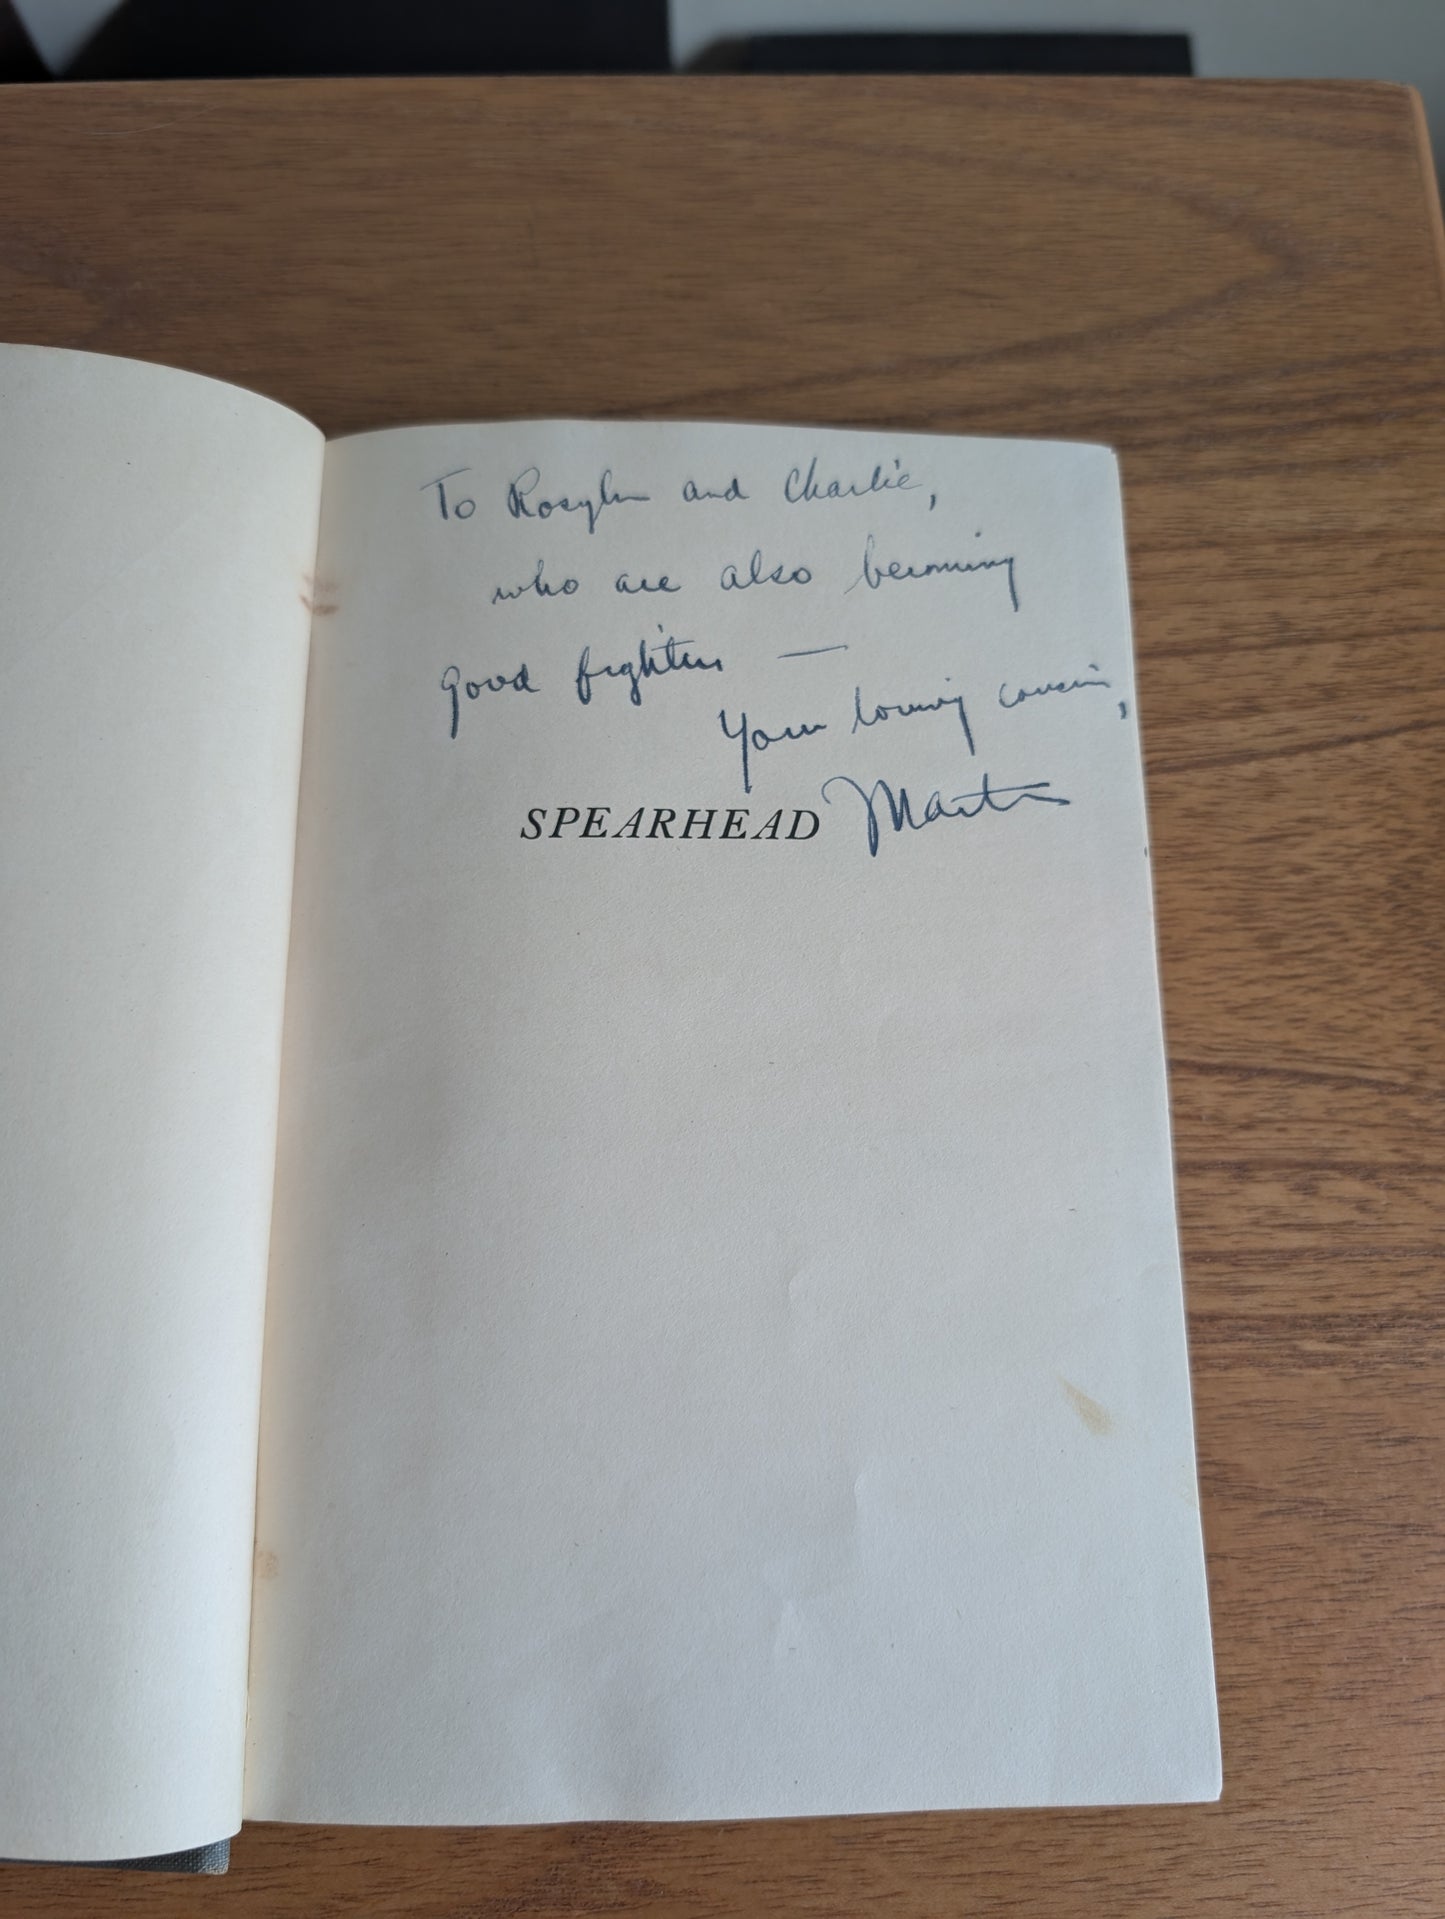 To Rosylin and Charlie,
who are also becoming
good fighters —
Your loving cousin,
SPEARHEAD Martin